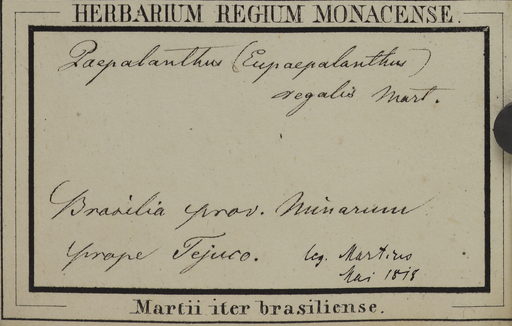 HERBARIUM REGIUM MONACENSE.
Paepalanthus (Eupaepalanthus)
regalis Mart.
Brasilia prov. Minarum
prope Tejuco. leg. Martius
Mai 1818
Martii iter brasiliense.